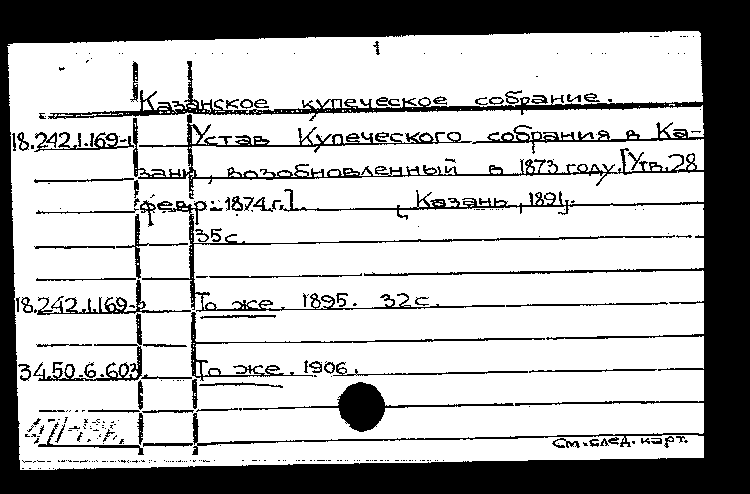 1
Казанское купеческое собрание.
18.242.1.169-1 Устав Купеческого собрания в Ка-
зани, возобновленный в 1873 году. [Утв. 28
февр. 1874 г.]. [Казань, 1891].
35 с.
18.242.1.169-2 То же. 1895. 32 с.
34.50.6.603. То же. 1906.
См. след. карт.